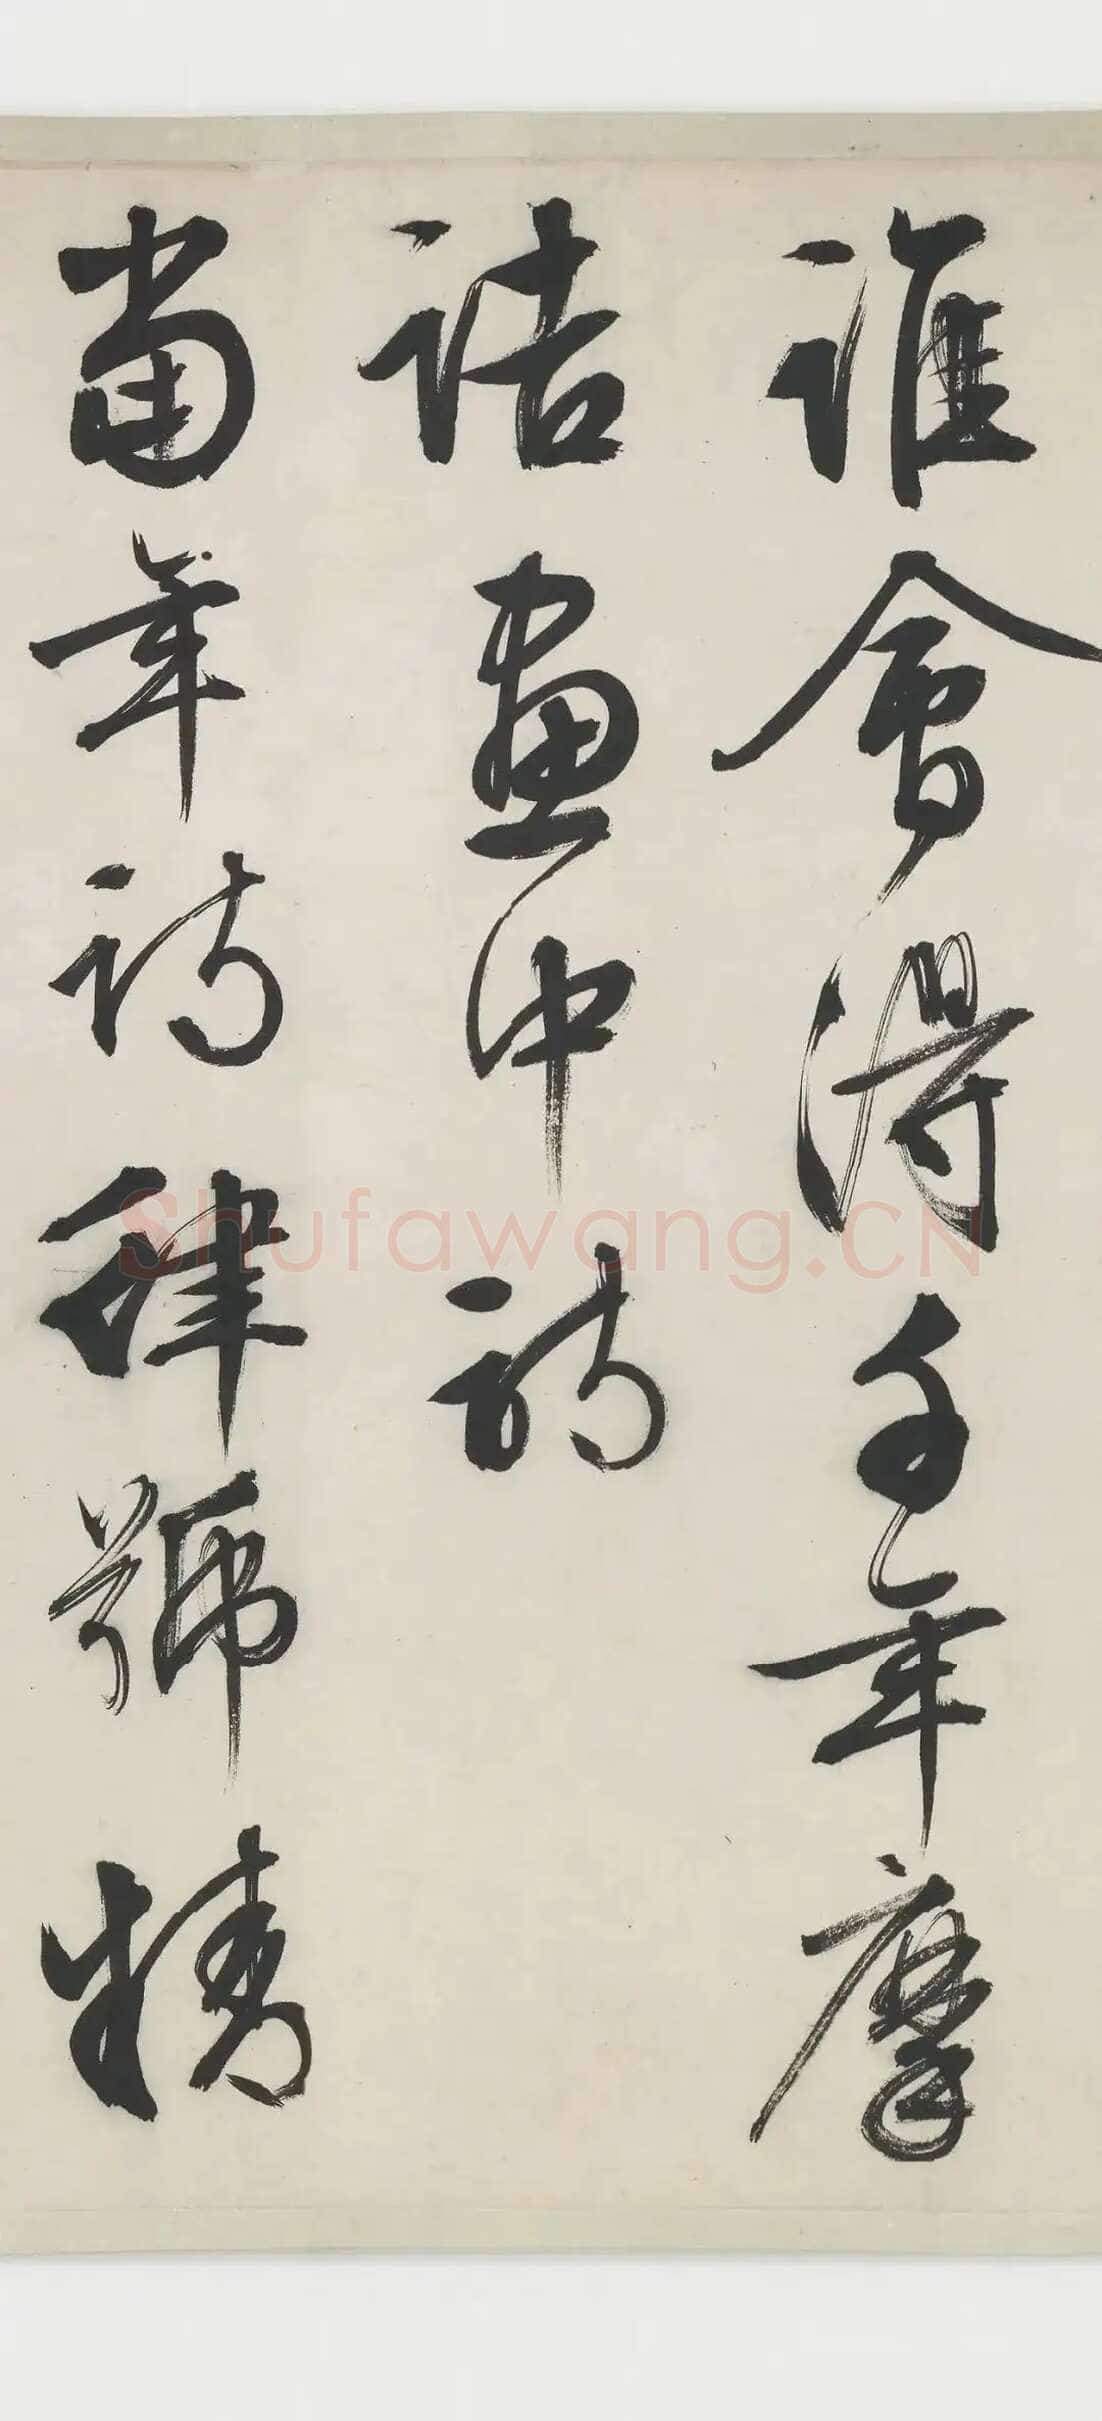 誰會得千年摩
詰畫中詩
當年詩肆號精
Shufawang.CN